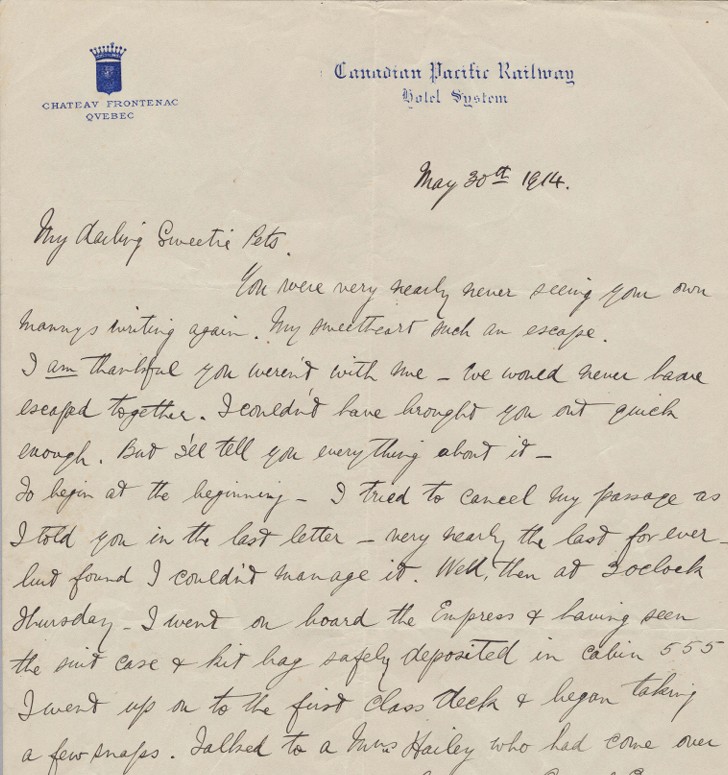 CHATEAV FRONTENAC
QVEBEC
Canadian Pacific Railway
Hotel System
May 30th 1914.
My darling Sweetie Pets.
You were very nearly never seeing your own
mannys writing again. My sweetheart such an escape.
I am thankful you weren't with me – We would never have
escaped together. I couldn't have brought you out quick
enough. But I'll tell you everything about it –
To begin at the beginning – I tried to cancel my passage as
I told you in the last letter – very nearly the last for ever –
but found I couldn't manage it. Well, then at 3 oclock
Thursday – I went on board the Empress & having seen
the suit case & kit bag safely deposited in cabin 555
I went up on to the first class deck & began taking
a few snaps. Talked to a Mrs Hailey who had come over